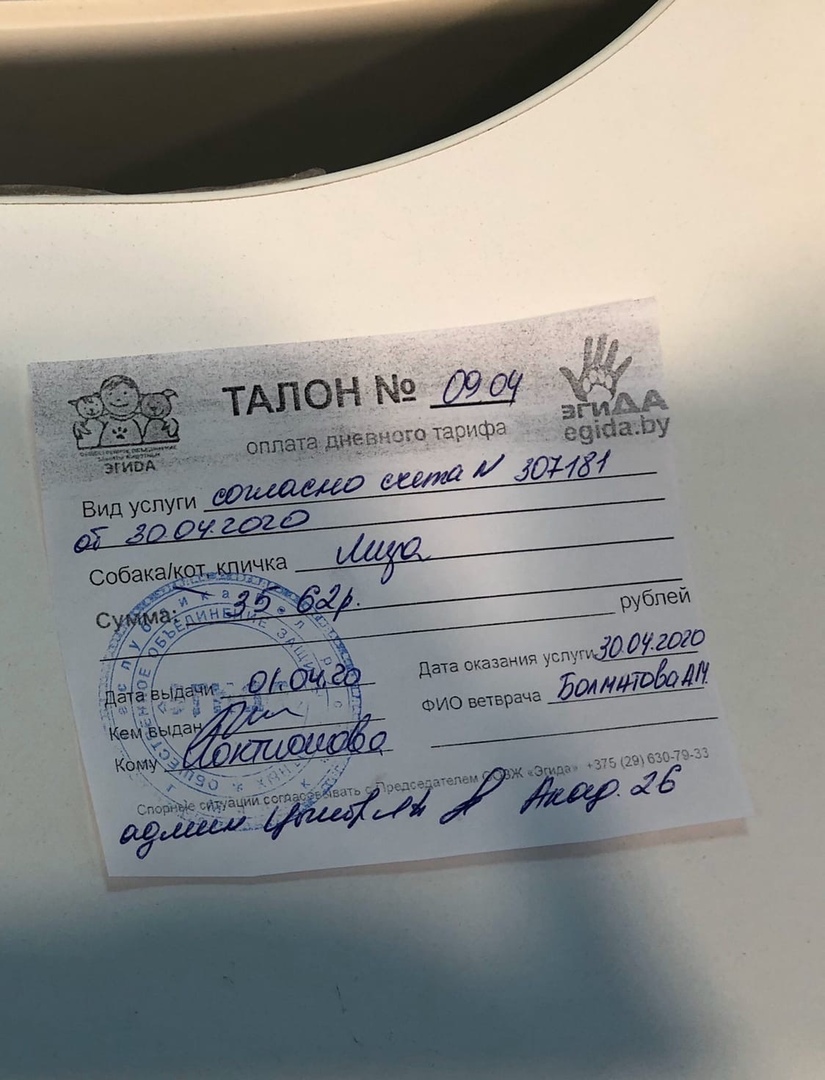 ТАЛОН № 0904
оплата дневного тарифа
ЭГИДА
ЭГИДА
egida.by
Вид услуги согласно счета N 307181
от 30.04.2020
Собака/кот, кличка Лиза
Сумма: 35 62р.
рублей
Дата выдачи 01.04.20
Дата оказания услуги 30.04.2020
Кем выдан
ФИО ветврача Болматова АМ
Кому Локтионова
Спорные ситуации согласовывать с Председателем ООЗЖ «Эгида» +375 (29) 630-79-33
админ Акад. 26
ОБЩЕСТВЕННОЕ ОБЪЕДИНЕНИЕ ЗАЩИТЫ